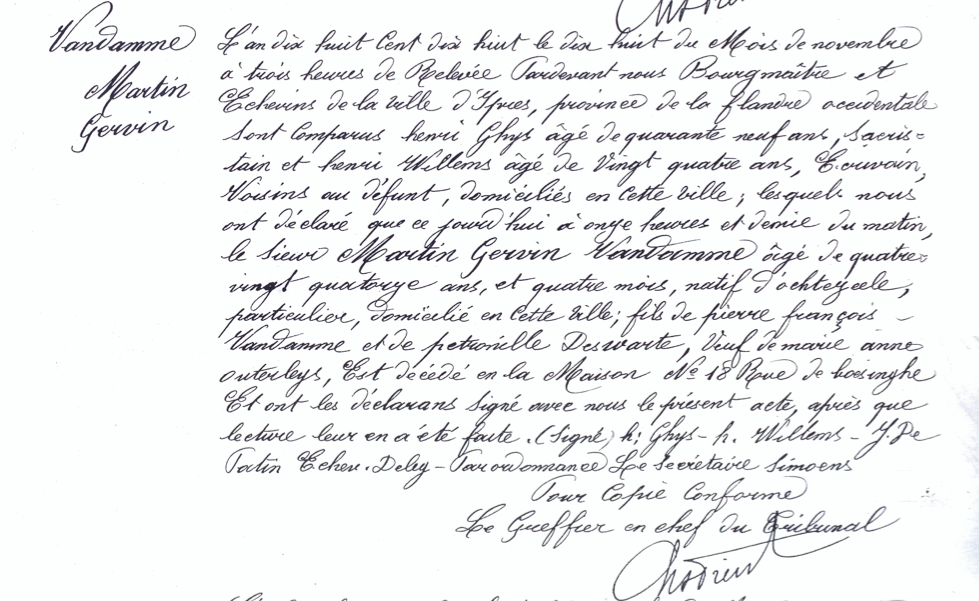 Vandamme
Martin
Gervin
L'an dix huit Cent dix huit le dix huit du Mois de novembre
à trois heures de Relevée Pardevant nous Bourgmaître et
Echevins de la ville d'Ypres, province de la flandre occidentale
Sont Comparus henri Ghys âgé de quarante neuf ans, Sacris=
tain et henri Willems âgé de Vingt quatre ans, Ecrivain,
Voisins au défunt, domiciliés en Cette ville; lesquels nous
ont déclaré que ce jourd'hui à onze heures et demie du matin,
le Sieur Martin Gervin Vandamme âgé de quatre=
vingt quatorze ans, et quatre mois, natif d'ochtezeele,
particulier, domicilié en Cette ville; fils de pierre françois -
Vandamme et de petronille Deswarte, Veuf de marie anne
outerleys, Est décédé en la Maison N° 18 Rue de boesinghe
Et ont les déclarans Signé avec nous le présent acte, après que
lecture leur en a été faite. (Signé) h: Ghys - h. Willems - J. De
Patin Echev. Deleg - Par ordonnance Le Secrétaire Simoens
Pour Copie Conforme
Le Greffier en chef du Tribunal